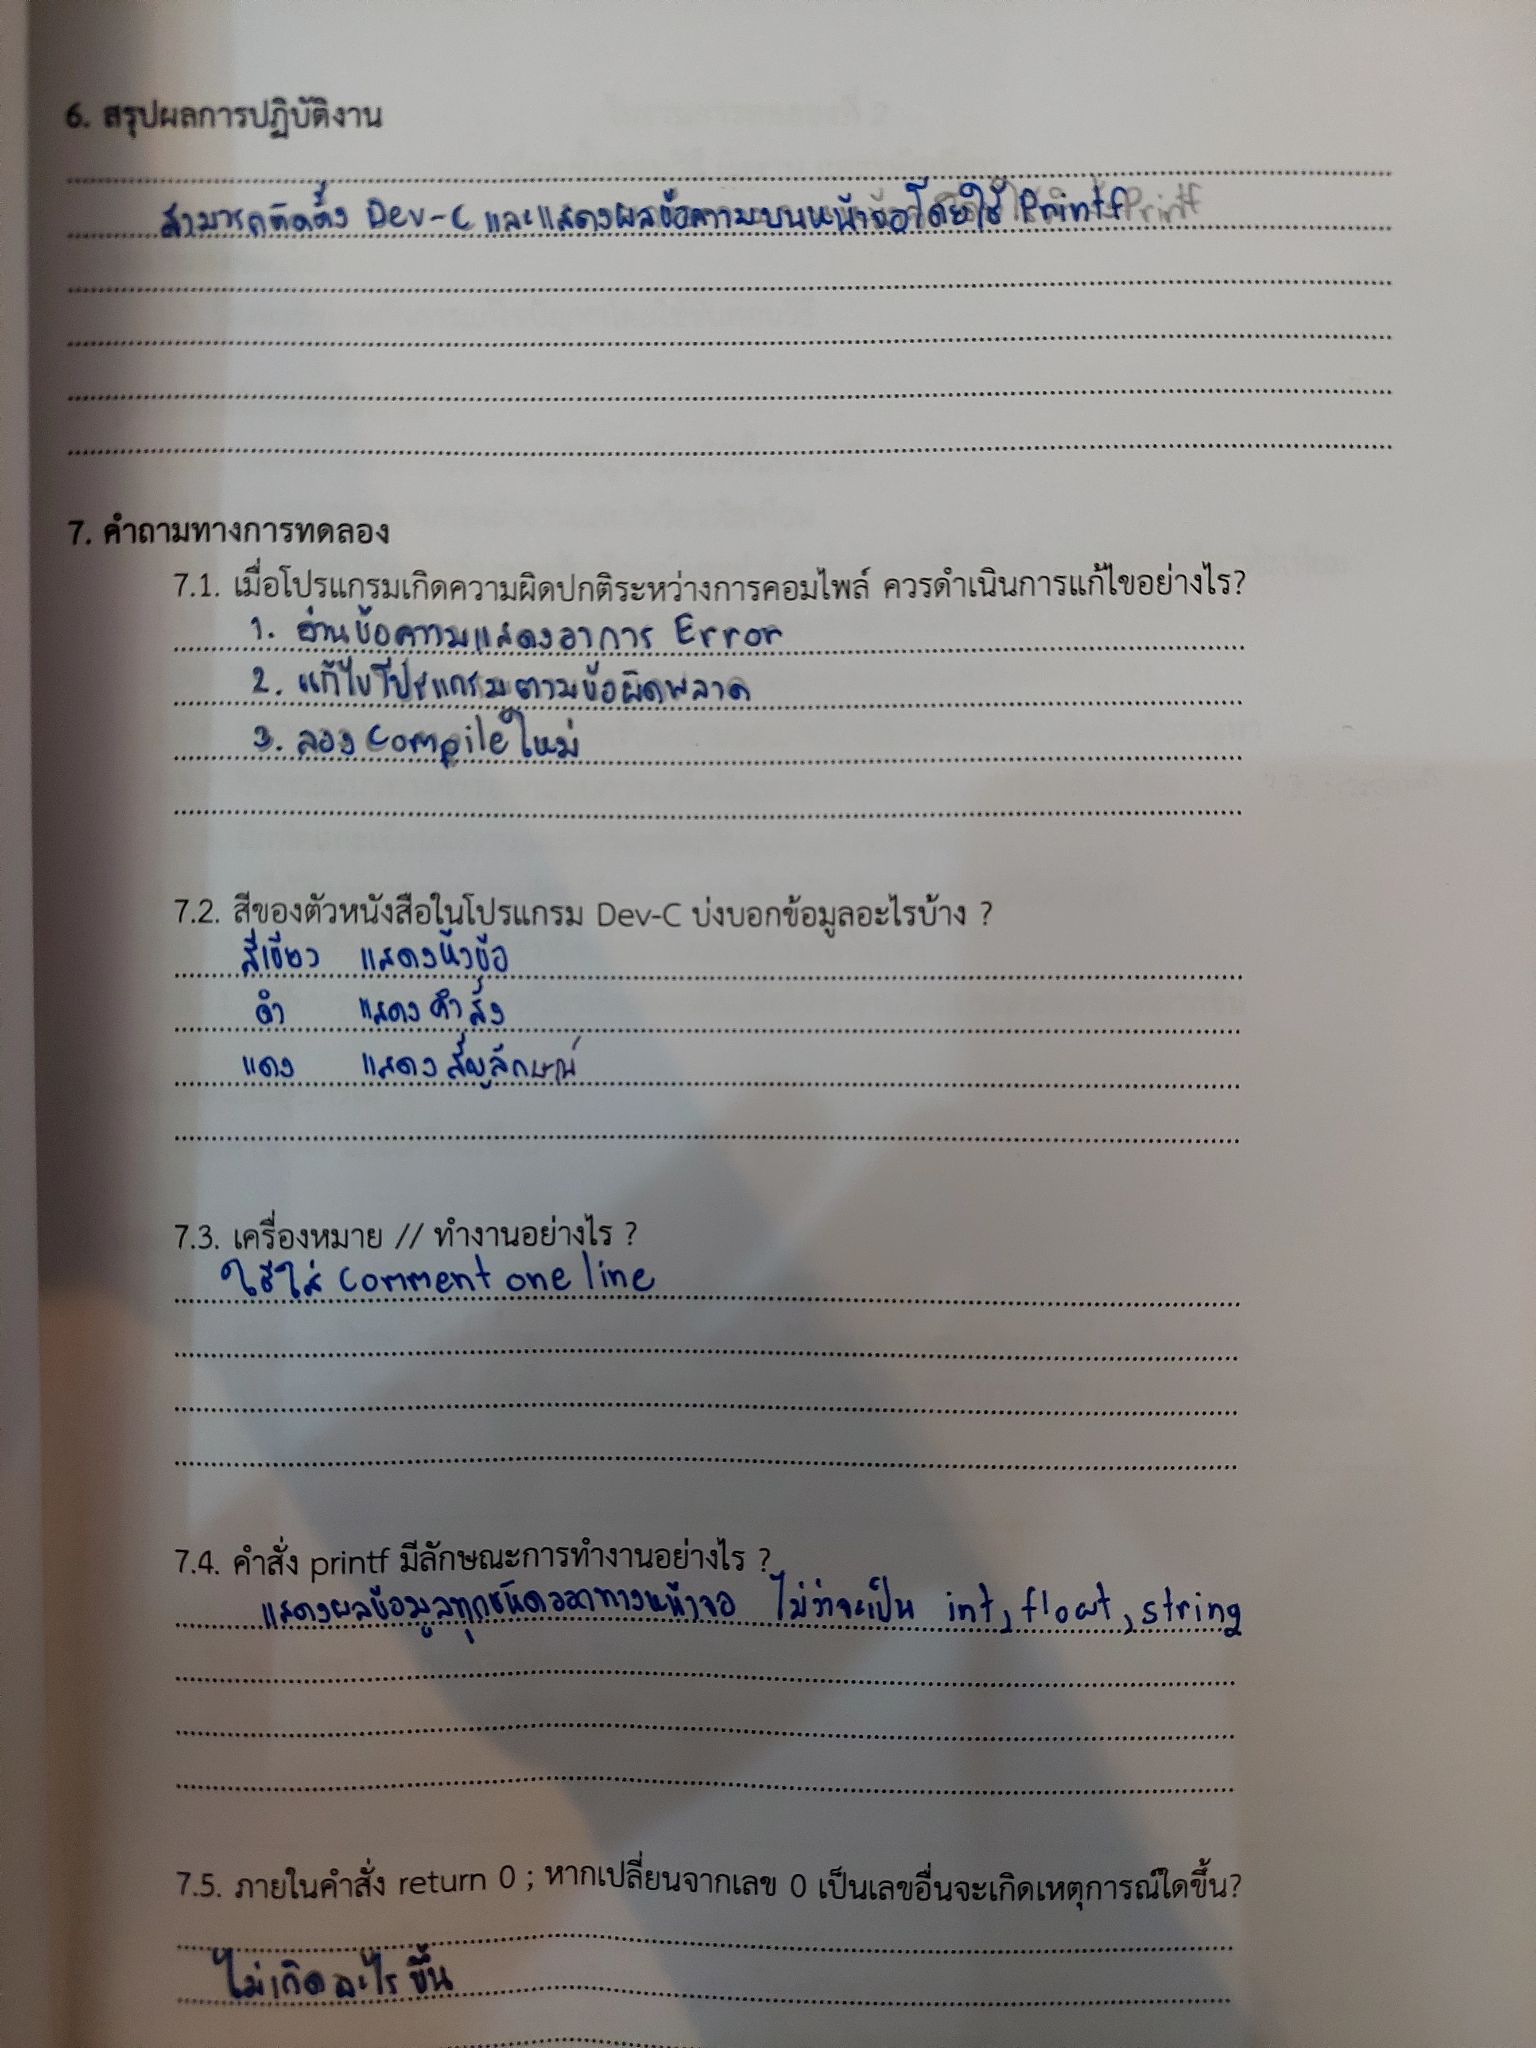 6. สรุปผลการปฏิบัติงาน
สามารถติดตั้ง Dev-C และแสดงผลข้อความบนหน้าจอโดยใช้ Printf Printf
7. คำถามทางการทดลอง
7.1. เมื่อโปรแกรมเกิดความผิดปกติระหว่างการคอมไพล์ ควรดำเนินการแก้ไขอย่างไร?
1. อ่านข้อความแสดงอาการ Error
2. แก้ไขโปรแกรมตามข้อผิดพลาด
3. ลอง Compile ใหม่
7.2. สีของตัวหนังสือในโปรแกรม Dev-C บ่งบอกข้อมูลอะไรบ้าง ?
สีเขียว แสดงหัวข้อ
ดำ แสดงคำสั่ง
แดง แสดงสัญลักษณ์
7.3. เครื่องหมาย // ทำงานอย่างไร ?
ใช้ใส่ Comment one line
7.4. คำสั่ง printf มีลักษณะการทำงานอย่างไร ?
แสดงผลข้อมูลทุกชนิดออกทางหน้าจอ ไม่ว่าจะเป็น int, float, string
7.5. ภายในคำสั่ง return 0 ; หากเปลี่ยนจากเลข 0 เป็นเลขอื่นจะเกิดเหตุการณ์ใดขึ้น?
ไม่เกิดอะไรขึ้น